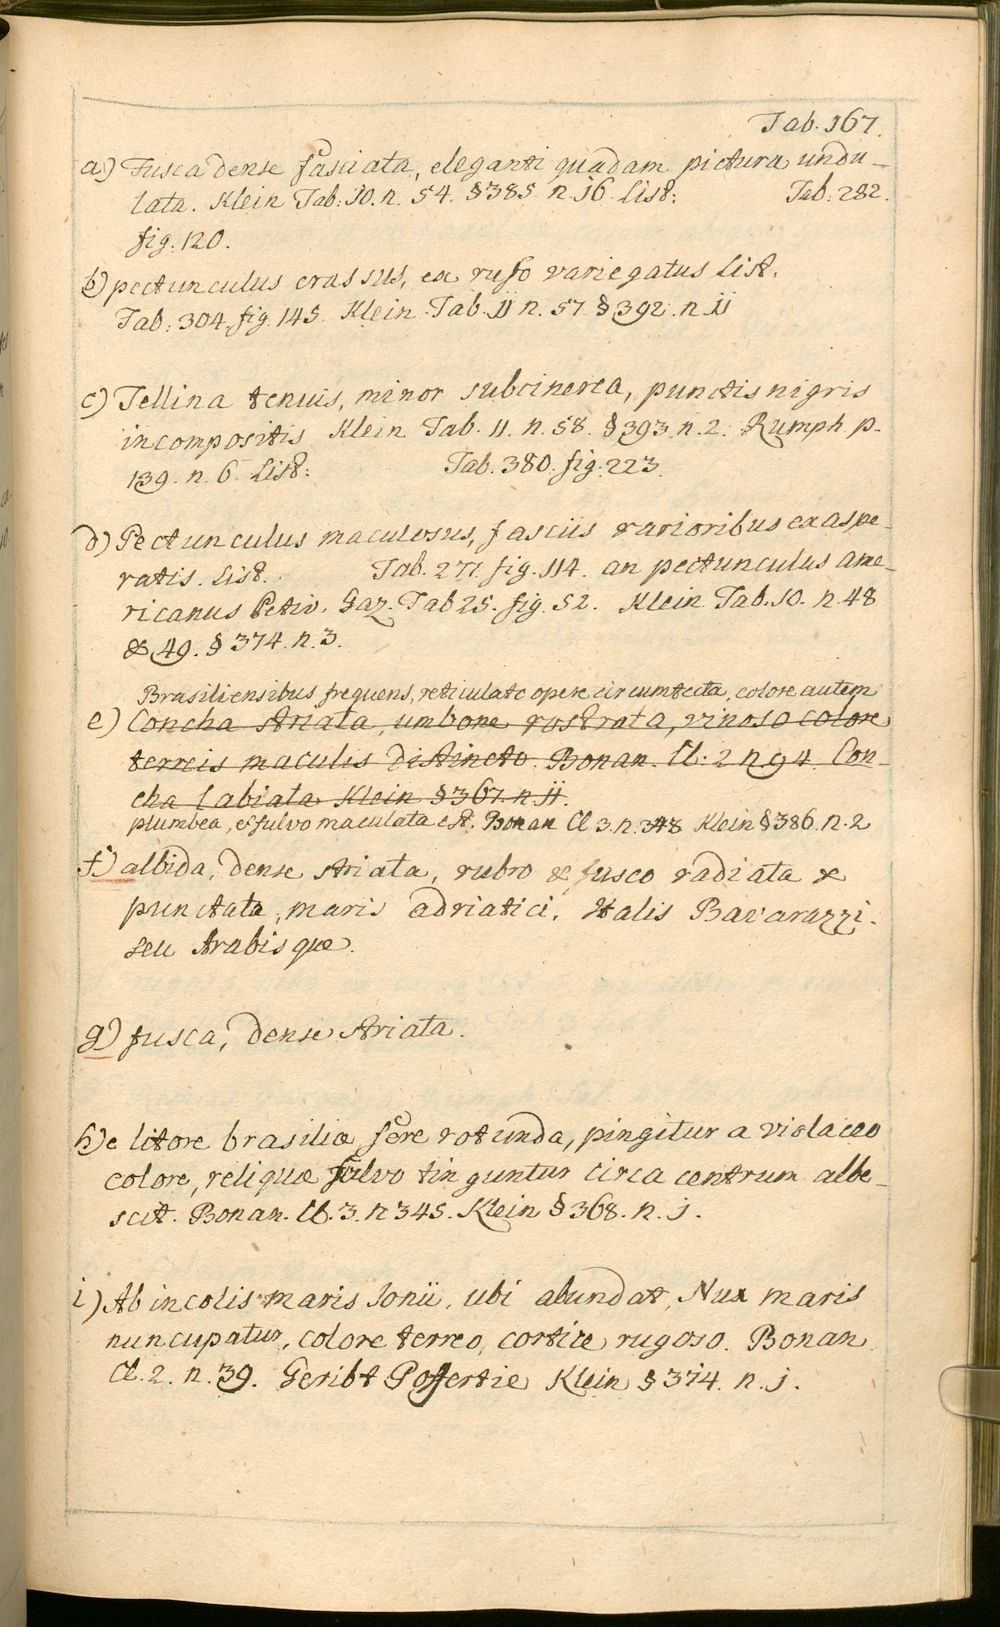 Tab. 167.
a) Fusca dense fasciata, eleganti quadam pictura undu-
lata. Klein Tab: 10. n. 54. § 385 n. 16 List: Tab: 282.
fig: 120.
b) pectunculus crassus, ex rufo variegatus List.
Tab: 304. fig. 145. Klein Tab. 11 n. 57 § 392. n. 11
c) Tellina tenuis, minor subcinerea, punctis nigris
incompositis Klein Tab. 11. n. 58. § 393. n. 2. Rumph p.
139. n. 6 List: Tab. 380. fig. 223.
d) Pectunculus maculosus, fasciis rarioribus exaspe-
ratis. List. Tab. 271. fig. 114. an pectunculus ame-
ricanus Petiv. Gaz. Tab 25. fig. 52. Klein Tab. 10. n. 48
& 49. § 374. n. 3.
Brasiliensibus frequens, reticulato opere circumtecta, colore autem
e) Concha striata, umbone rostrata, vinoso colore
terreis maculis distincto. Bonan. Cl: 2 n 94. Con-
cha labiata Klein § 367. n. 11.
plumbea, et fulvo maculata est. Bonan Cl 3. n. 348 Klein § 386. n. 2
f) albida, dense striata, rubro & fusco radiata &
punctata, maris adriatici. Italis Bavarazzi.
seu Arabisque.
g) fusca, dense striata.
h) e litore brasiliæ fere rotunda, pingitur a violaceo
colore, reliquæ fulvo tinguntur circa centrum albe-
scit. Bonan. Cl. 3. n 345. Klein § 368. n. 1.
i) Ab incolis maris Ionii, ubi abundat, Nux maris
nuncupatur, colore terreo, cortice rugoso. Bonan.
Cl. 2. n. 39. Geribt Poffertie Klein § 374. n. 1.